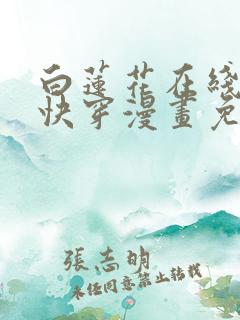 白蓮花在綫
快穿漫畫免
張志明
未经同意禁止转载